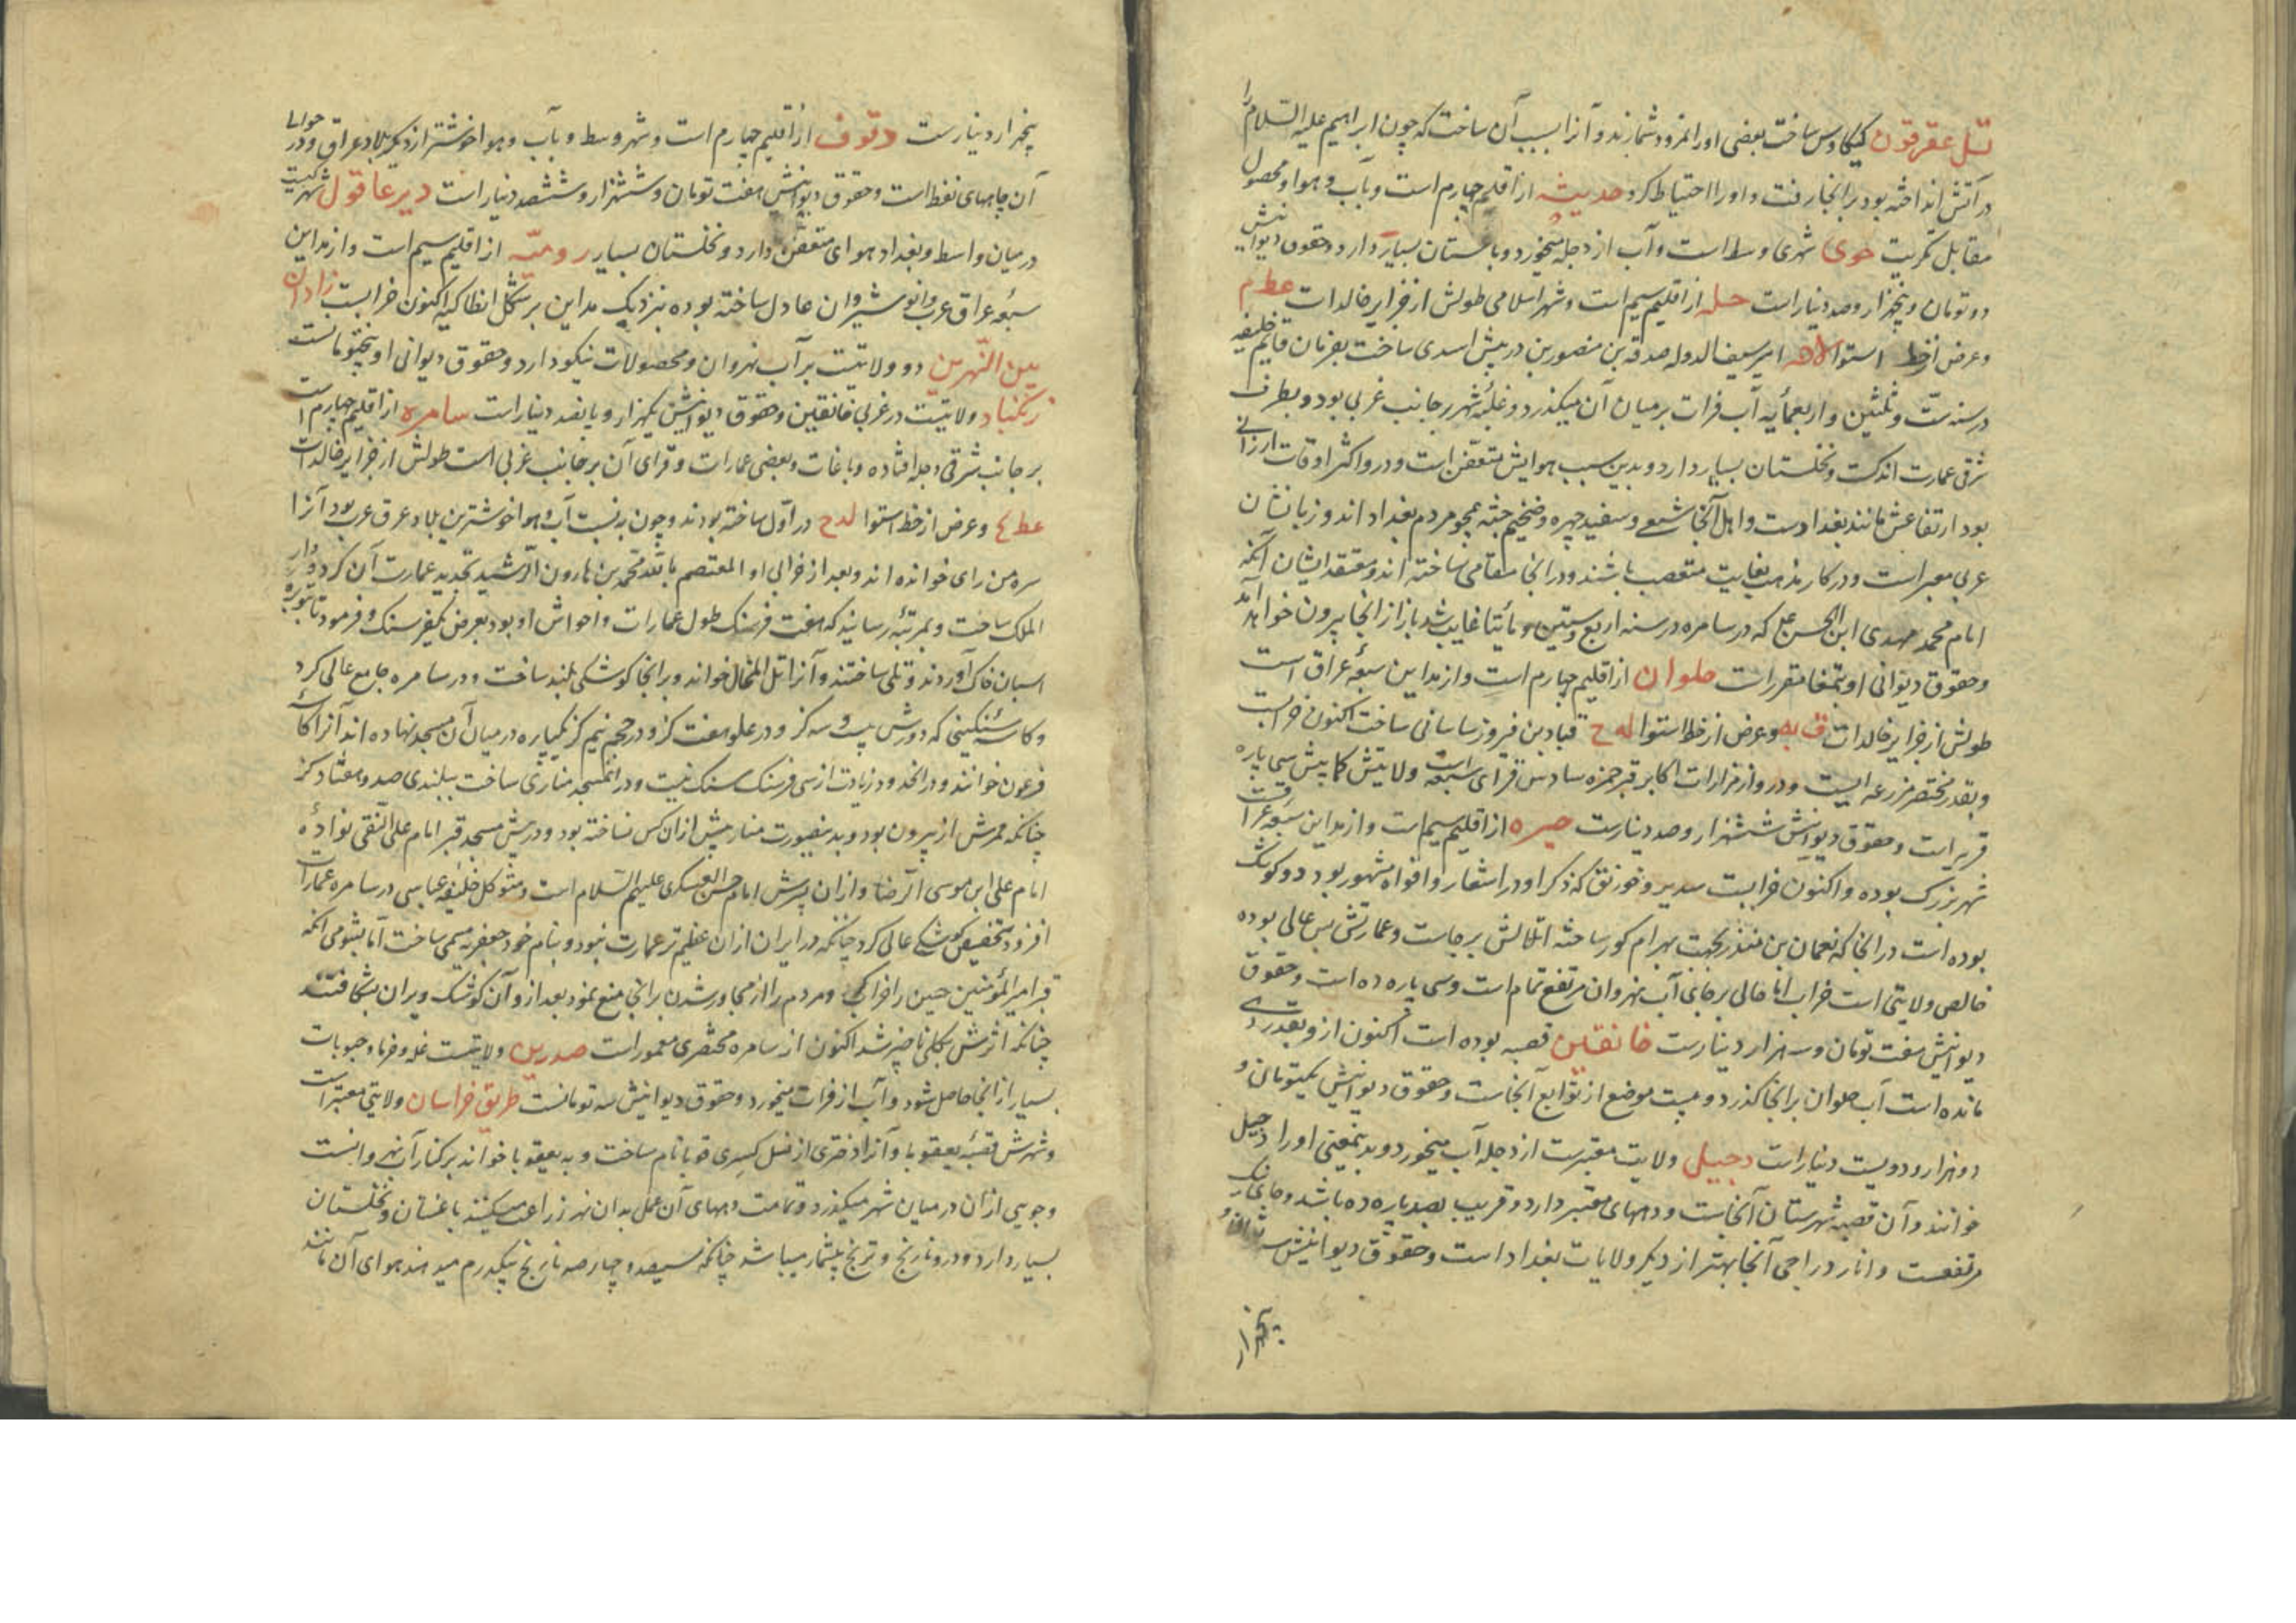 تل عقرقوف کیکاوس ساخت بعضی او را نمرود شمارند و آنرا بسبب آن ساخت که چون ابراهیم علیه السلام را
در آتش انداخته بود برانجا رفت و او را احتیاط کرد حدیثه از اقلیم چهارم است و آب و هوا و محصول
مقابل تکریت حوی شهری وسط است و آب از دجله میخورد و باغستان بسیار دارد و حقوق دیوانیش
دو تومان و پنجهزار و صد دینار است حله از اقلیم سیم است و شهر اسلامی طولش از جزایر خالدات عط م
و عرض از خط استوا امیر سیف الدوله صدقه بن منصور بن دبیس اسدی ساخت بفرمان قایم خلیفه
در سنه ست و ثلثین و اربعمأیه آب فرات بر میان آن میگذرد و غلبه شهر بر جانب غربی بود و بطرف
شرقی عمارت اندکست و نخلستان بسیار دارد و بدین سبب هوایش متعفن است و درو اکثر اوقات ارزانی
بود ارتفاعش مانند بغدادست و اهل آنجا شیعی و سفید چهره و ضخیم جثه همچو مردم بغداد اند و زبانشان
عربی مغیر است و در کار مذهب بغایت متعصب باشند و در انجا مقامی ساخته اند و معتقد ایشان آنکه
امام محمد مهدی ابن الحسن که در سامره در سنه اربع و ستین و مأئتا غایب شد باز از انجا بیرون خواهد آمد
و حقوق دیوانی او بتمغا مقرر است حلوان از اقلیم چهارم است و از مداین سبعه عراق است
طولش از جزایر خالدات و عرض از خط استوا له ح قباد بن فیروز ساسانی ساخت اکنون خرابست
و بقدر مختصر مزرعه ایست و درو از مزارات اکابر قبر حمزه سادس قرای سبعه است ولایتش کمابیش سی پاره
قریه است و حقوق دیوانش ششهزار و صد دینارست حیره از اقلیم سیم است و از مداین سبعه عراقست
شهر بزرک بوده و اکنون خرابست سدیر و خورنق که ذکر او در اشعار و افواه مشهور بود دو کوشک
بوده است در انجا که نعمان بن منذر بجهت بهرام کور ساخته اتلالش برجاست و عمارتش بس عالی بوده
خالص ولایتی است خراب اما حالی بر جای آب نهروان مرتفع تمام است و سی پاره ده است و حقوق
دیوانیش هفت تومان و سه هزار دینارست خانقین قصبه بوده است اکنون ازو بقدر دهی
مانده است آب حلوان برانجا گذرد و بیست موضع از توابع آنجاست و حقوق دیوانیش یکتومان و
دو هزار و دویست دینار است دجیل ولایت معتبرست از دجله آب میخورد و بدینمعنی او را دجیل
خوانند و آن قصبه شهرستان آنجاست و دههای معتبر دارد و قریب بصد پاره ده باشد و جای نارنک
مرتفعست و انار دراجی آنجا بهتر از دیکر ولایات بغداد است و حقوق دیوانیش سه تومان و
پنجهزار
پنجهزار دینارست دقوق از اقلیم چهارم است و شهر وسط و بآب و هوا خوشتر از دیکر بلاد عراق و در حوالی
آن چاههای نفط است و حقوق دیوانیش هفت تومان و ششهزار و ششصد دینار است دیر عاقول شهریست
درمیان واسط و بغداد هوای متعفن دارد و نخلستان بسیار رومیه از اقلیم سیم است و از مداین
سبعه عراق عرب و انوشیروان عادل ساخته بوده نزدیک مداین بر شکل انطاکیه اکنون خرابست زادان
بین النهرین دو ولایتیست بر آب نهروان و محصولات نیکو دارد و حقوق دیوانی او پنجتومانست
زنکناد ولایتیست در غربی خانقین و حقوق دیوانیش یکهزار و پانصد دینار است سامره از اقلیم چهارم است
بر جانب شرقی دجله افتاده و باغات و بعضی عمارات و قرای آن بر جانب غربی است طولش از جزایر خالدات
عط ع و عرض از خط استوا لد ح در اول ساخته بودند و چون به نسبت آب و هوا خوشترین بلاد عرق عرب بود آنرا
سره من رای خوانده اند و بعد از خرابی او المعتصم بالله محمد بن هارون الرشید تجدید عمارت آن کرد و دار
الملک ساخت و بمرتبه رسانید که هفت فرسنک طول عمارات و احواش او بود بعرض یکفرسنک و فرمود تا بتوبره
اسبان خاک آوردند و تلی ساختند و آنرا تل المخالی خواند و برانجا کوشکی بلند ساخت و در سامره جامع عالی کرد
و کاسه سنکینی که دورش بیست و سه کز و در علو هفت کز و در حجم نیم کز یکپاره در میان آن مسجد نهاده اند آنرا کاسه
فرعون خوانند و در انحدود زیادت از سی فرسنک سنک نیست و در انمسجد مناری ساخت ببلندی صد و هفتاد کز
چنانکه ممرش از بیرون بود و بدینصورت منار پیش ازان کس نساخته بود و در پیش مسجد قبر امام علی النقی نواده
امام علی ابن موسی الرضا و ازان پسرش امام حسن العسکری علیهم السلام است و متوکل خلیفه عباسی در سامره عمارات
افزود بتخصیص کوشکی عالی کرد چنانکه در ایران ازان عظیم تر عمارت نبود و بنام خود جعفریه مسمی ساخت اما بشومی آنکه
قبر امیر المؤمنین حسین را خراب کرد و مردم را از مجاور شدن برانجا منع نمود بعد ازو آن کوشک ویران بشکافتند
چنانکه اثرش بکلی ناچیز شد اکنون از سامره مختصری معمور است صدرین ولایتیست غله و خرما و حبوبات
بسیار از انجا حاصل شود و آب از فرات میخورد و حقوق دیوانیش سه تومانست طریق خراسان ولایتی معتبر است
و شهرش قصبه یعقوبا و آنرا دختری از نسل کسری قوبا نام ساخت و به یعقوبا خواند بر کنار آب نهروانست
و جویی ازان در میان شهر میکذرد و تمامت دههای آن عمل بدان نهر زراعت میکنند باغستان و نخلستان
بسیار دارد و درو نارنج و ترنج بیشمار میباشد چنانکه سیصد و چهارصد نارنج بیکدرم میدهند هوای آن مانند